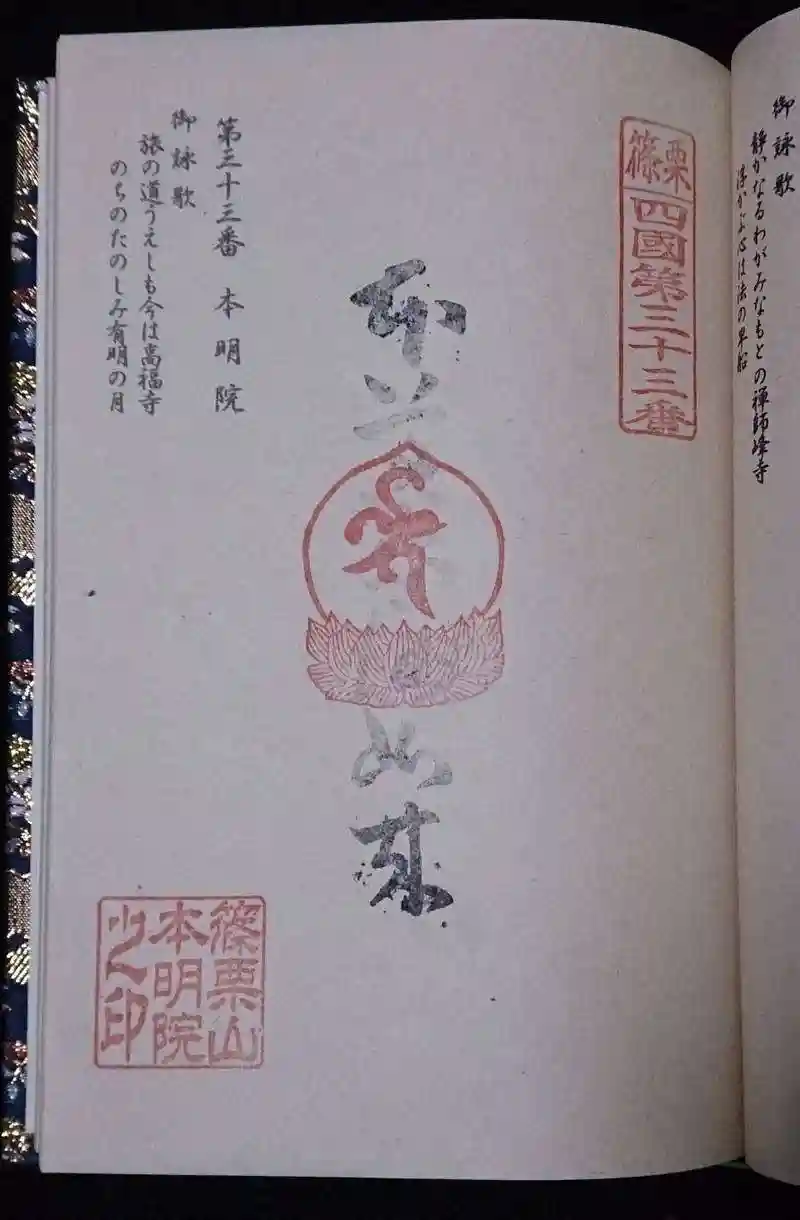 御詠歌
静かなるわがみなもとの禅師峰寺
浮かぶ心は法の早船
篠栗四國第三十三番
本 来
第三十三番 本明院
御詠歌
旅の道うえしも今は高福寺
のちのたのしみ有明の月
篠栗山
本明院
之印